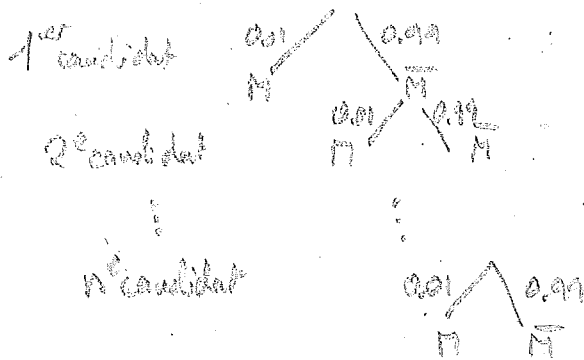 1er candidat 0.01 0.99
M M̅
2e candidat 0.01 0.99
M M̅
⋮ ⋮
ne candidat 0.01 0.99
M M̅